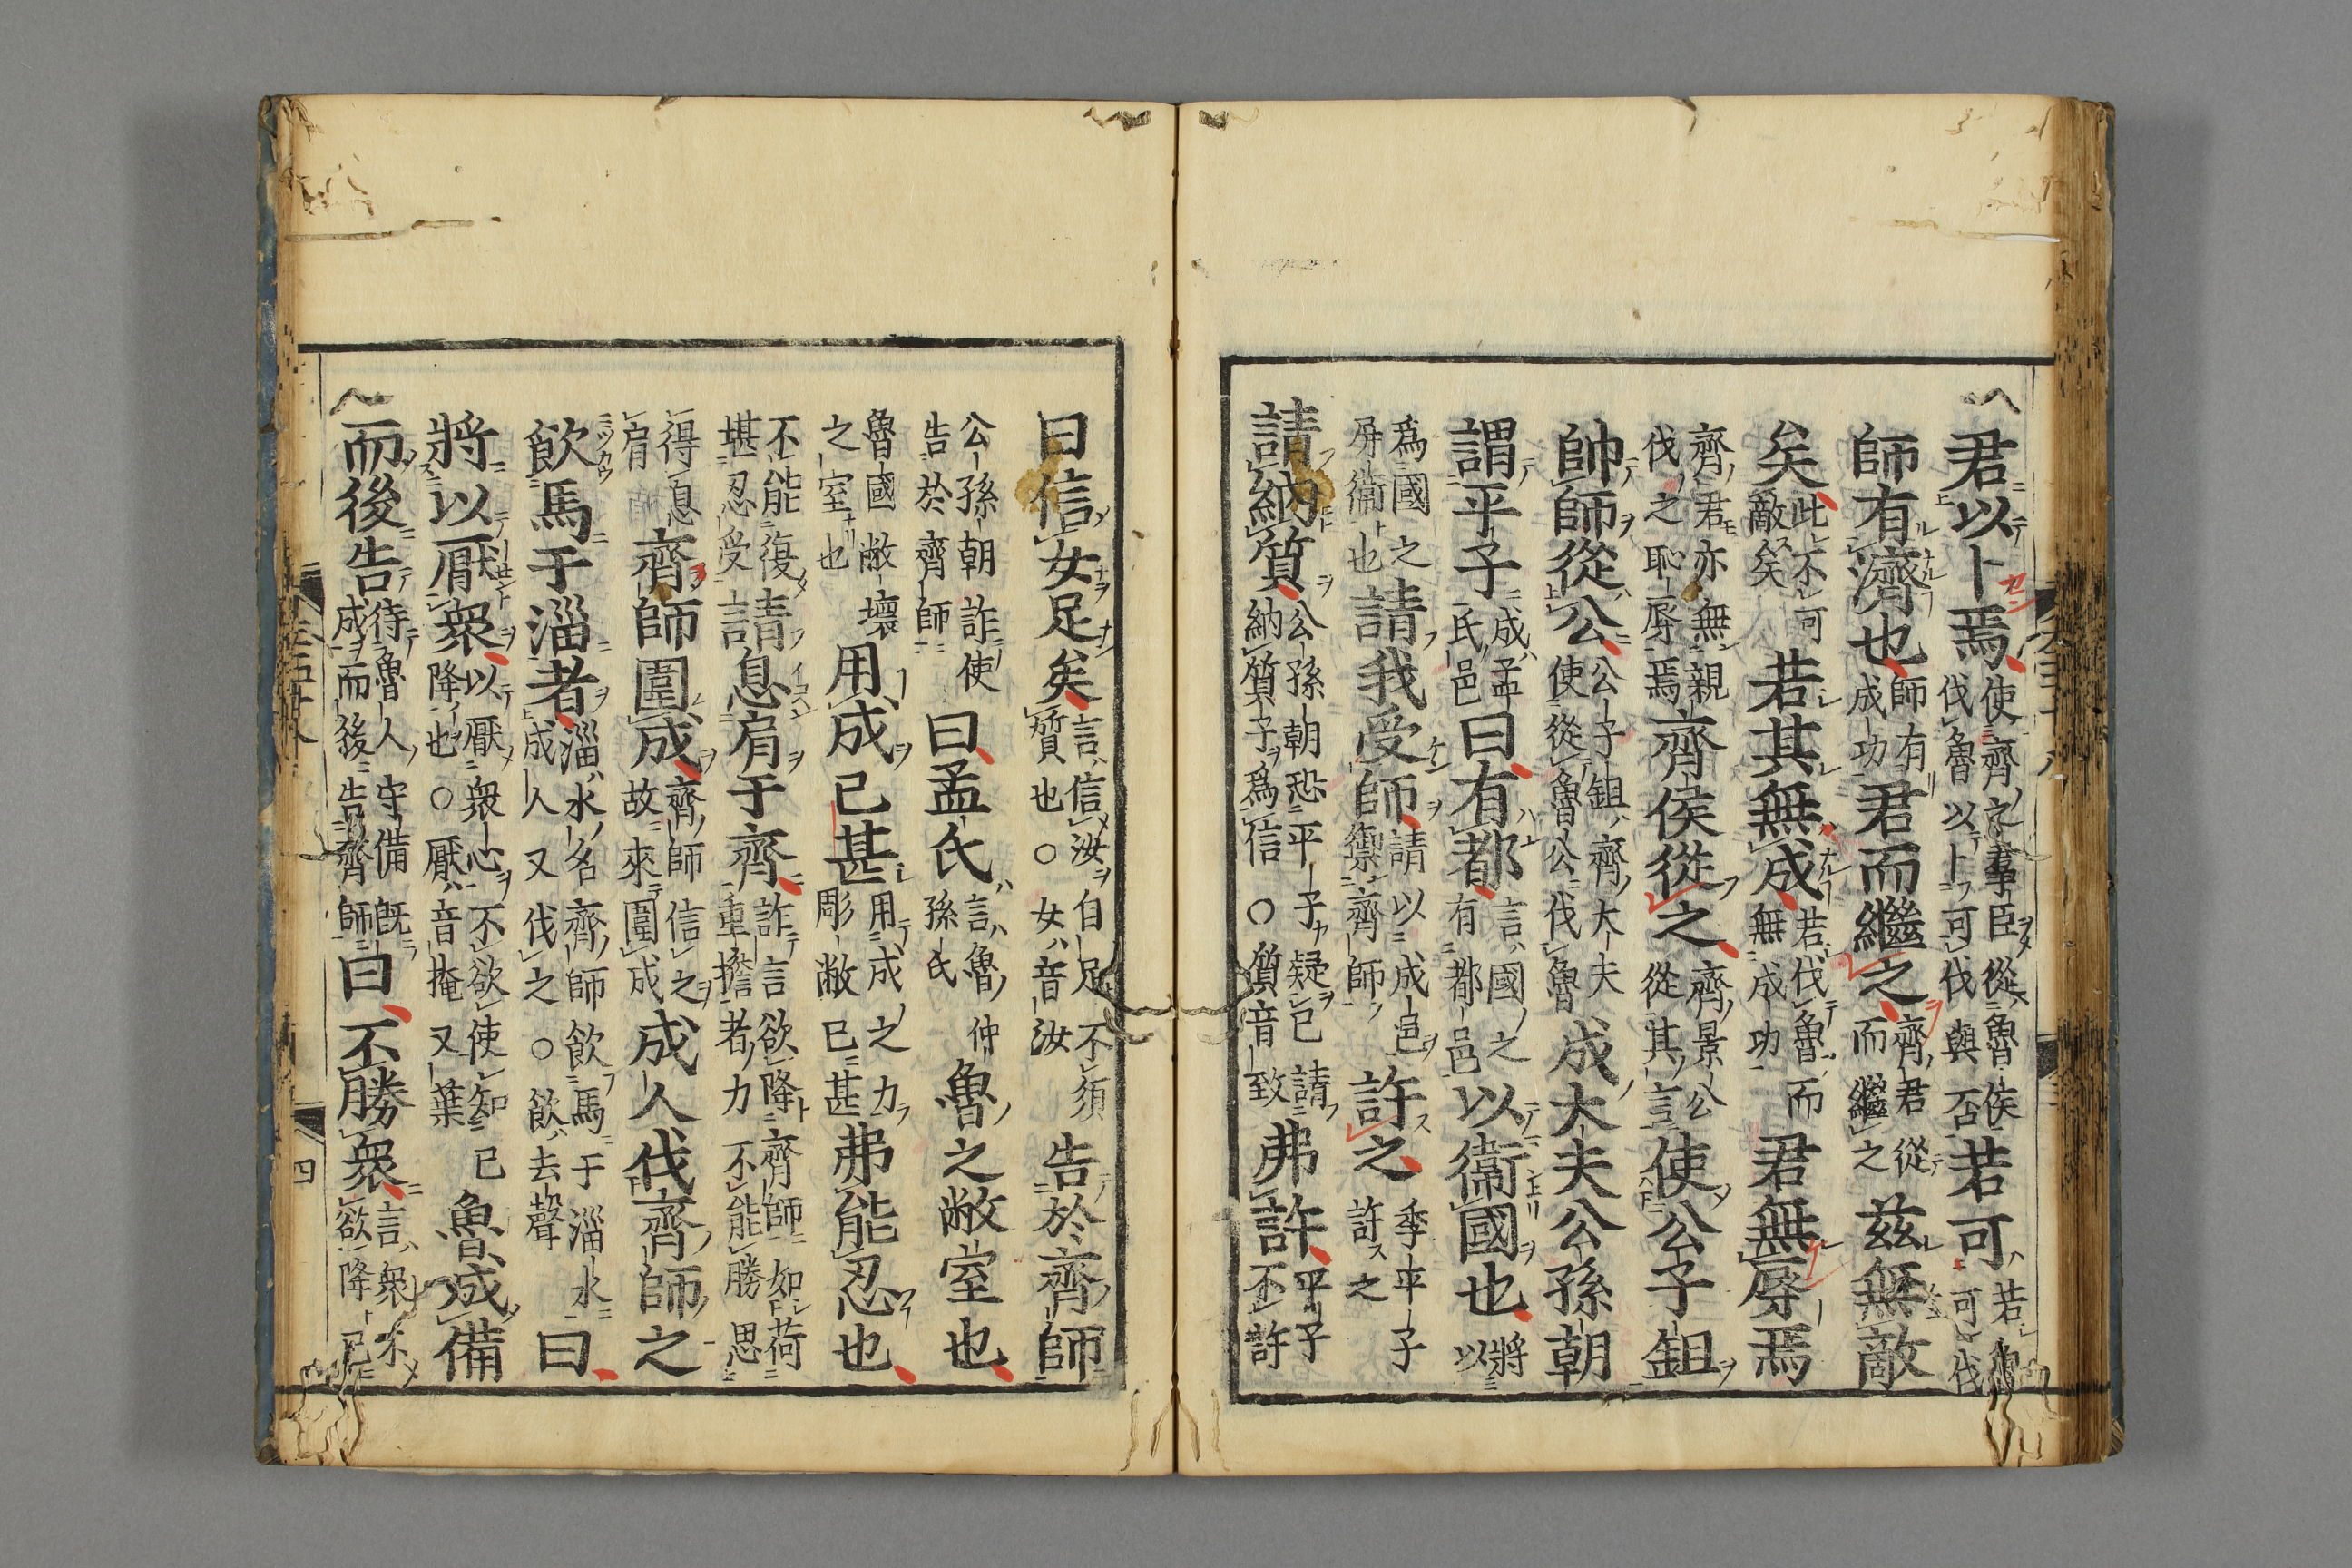 君以卜焉使齊之羣臣從魯侯伐魯以卜可伐與否若可若可伐
師有濟也師有成功君而繼之齊君從而繼之茲無敵
矣此不可敵矣若其無成若伐魯而無成功君無辱焉
齊君亦無親伐之恥辱焉齊侯從之齊景公從其言使公子鉏
帥師從公公子鉏齊大夫使從魯公伐魯成大夫公孫朝
謂平子成孟氏邑曰有都言國之有都邑以衞國也將以
爲國之屛衞也請我受師請以成邑禦齊師許之季平子許之
請納質公孫朝恐平子疑已請納質子爲信○質音致弗許平子不許
曰信女足矣言信汝自足不須質也○女音汝告於齊師
公孫朝詐使告於齊師曰孟氏言魯仲孫氏魯之敝室也
魯國敝壞之室也用成已甚用成之力彫敝已甚弗能忍也
不能復堪忍受請息肩于齊詐言欲降齊師如荷重擔者力不能勝思
得息肩齊師圍成齊師信之故來圍成成人伐齊師之
飮馬于淄者淄水名齊師飮馬于淄水成人又伐之○飮去聲曰
將以厭衆以厭衆心不欲使知已降也○厭音掩又葉魯成備
而後告待魯人守備旣成而後告齊師曰不勝衆言衆不欲降已
四